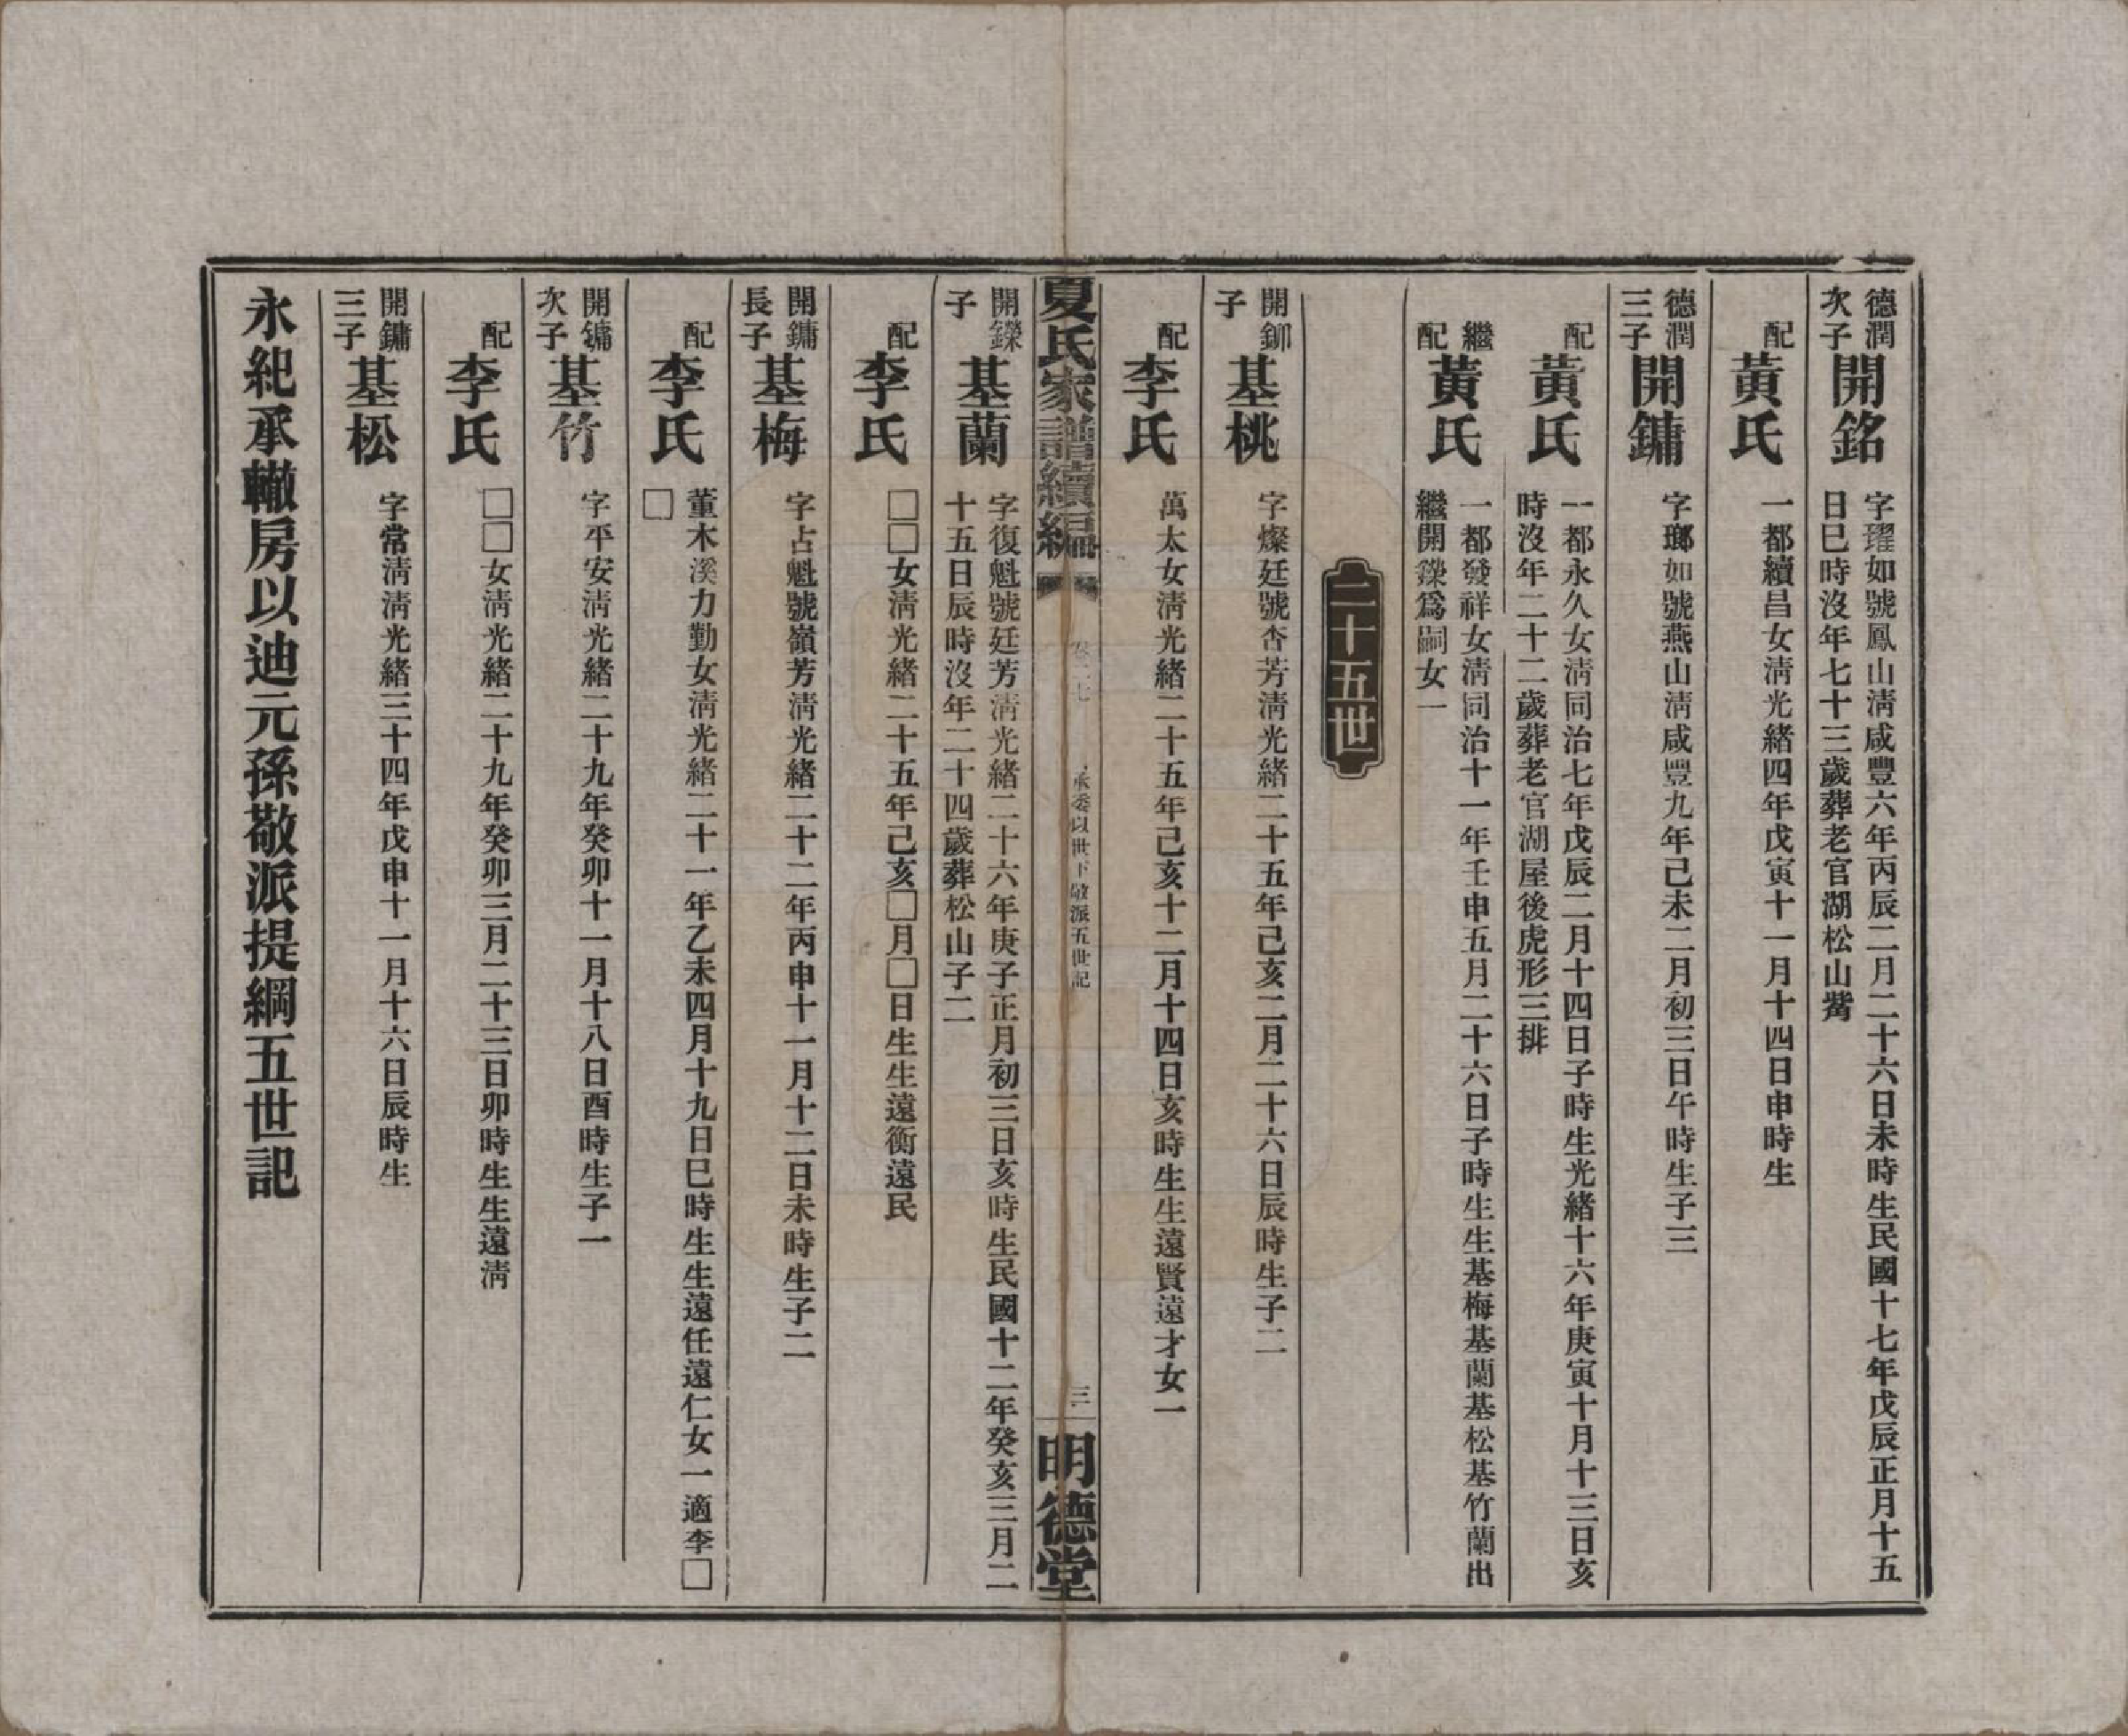 德潤
次子
開銘
字瓘如號鳳山淸咸豐六年丙辰二月二十六日未時生民國十七年戊辰正月十五
日巳時沒年七十三歲葬老官湖松山觜
配
黃氏
一都續昌女淸光緒四年戊寅十一月十四日申時生
德潤
三子
開鏞
字瑯如號燕山淸咸豐九年己未二月初三日午時生子三
配
黃氏
一都永久女淸同治七年戊辰二月十四日子時生光緒十六年庚寅十月十三日亥
時沒年二十二歲葬老官湖屋後虎形三排
繼
配
黃氏
一都發祥女淸同治十一年壬申五月二十六日子時生生基梅基蘭基松基竹蘭出
繼開鑅爲嗣女一
二十五世
開鉚
子
基桃
字燦廷號杏芳淸光緒二十五年己亥二月二十六日辰時生子二
配
李氏
萬太女淸光緒二十五年己亥十二月十四日亥時生生遠賢遠才女一
夏氏家譜續編
以世下敬派五世記
三
明德堂
開鑅
子
基蘭
字復魁號廷芳淸光緒二十六年庚子正月初三日亥時生民國十二年癸亥三月二
十五日辰時沒年二十四歲葬松山子二
配
李氏
□□女淸光緒二十五年己亥□月□日生生遠衡遠民
開鏞
長子
基梅
字占魁號嶺芳淸光緒二十二年丙申十一月十二日未時生子二
配
李氏
董木溪力勤女淸光緒二十一年乙未四月十九日巳時生生遠任遠仁女一適李□
□
開鏞
次子
基竹
字平安淸光緒二十九年癸卯十一月十八日酉時生子一
配
李氏
□□女淸光緒二十九年癸卯三月二十三日卯時生生遠淸
開鏞
三子
基松
字常淸淸光緒三十四年戊申十一月十六日辰時生
永紀承轍房以迪元孫敬派提綱五世記